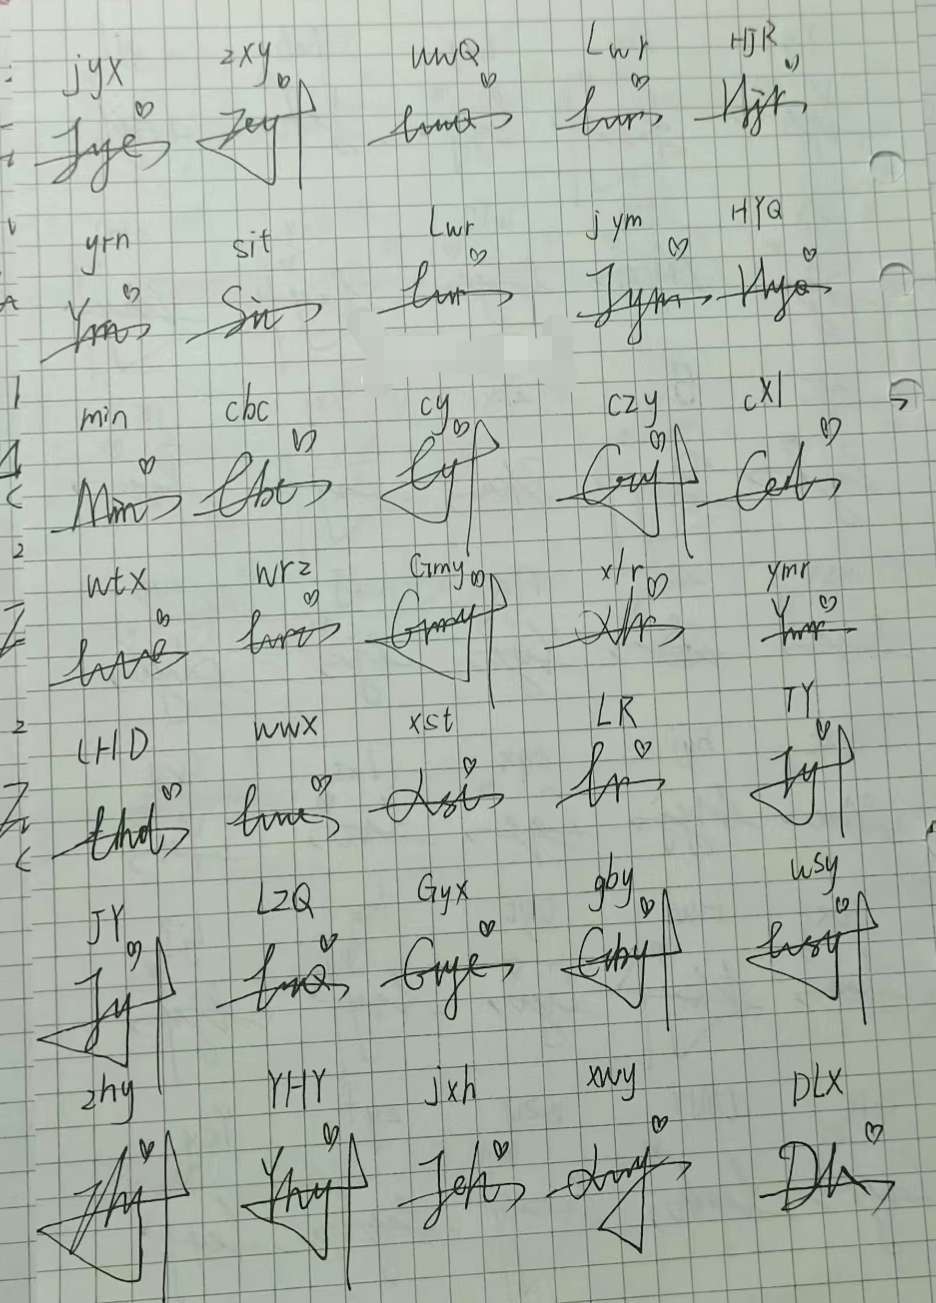 jyx zxy wwQ Lwr HJR
Jye Zey lwr Hjr
yrn sit Lwr jym HYQ
Yrn Sit lwr Jym Hyq
min cbc cy czy cxl
Min Cbc Cy Czy Cel
wtx wrz Gmy xlr ymr
wrz Gmy Xlr Ymr
LHD wwx xst LR TY
Lhd Xst Lr Ty
JY LZQ Gyx gby wsy
Jy Gye Gby wsy
zhy YHY jxh xwy DLX
Zhy Yhy Jeh Xwy